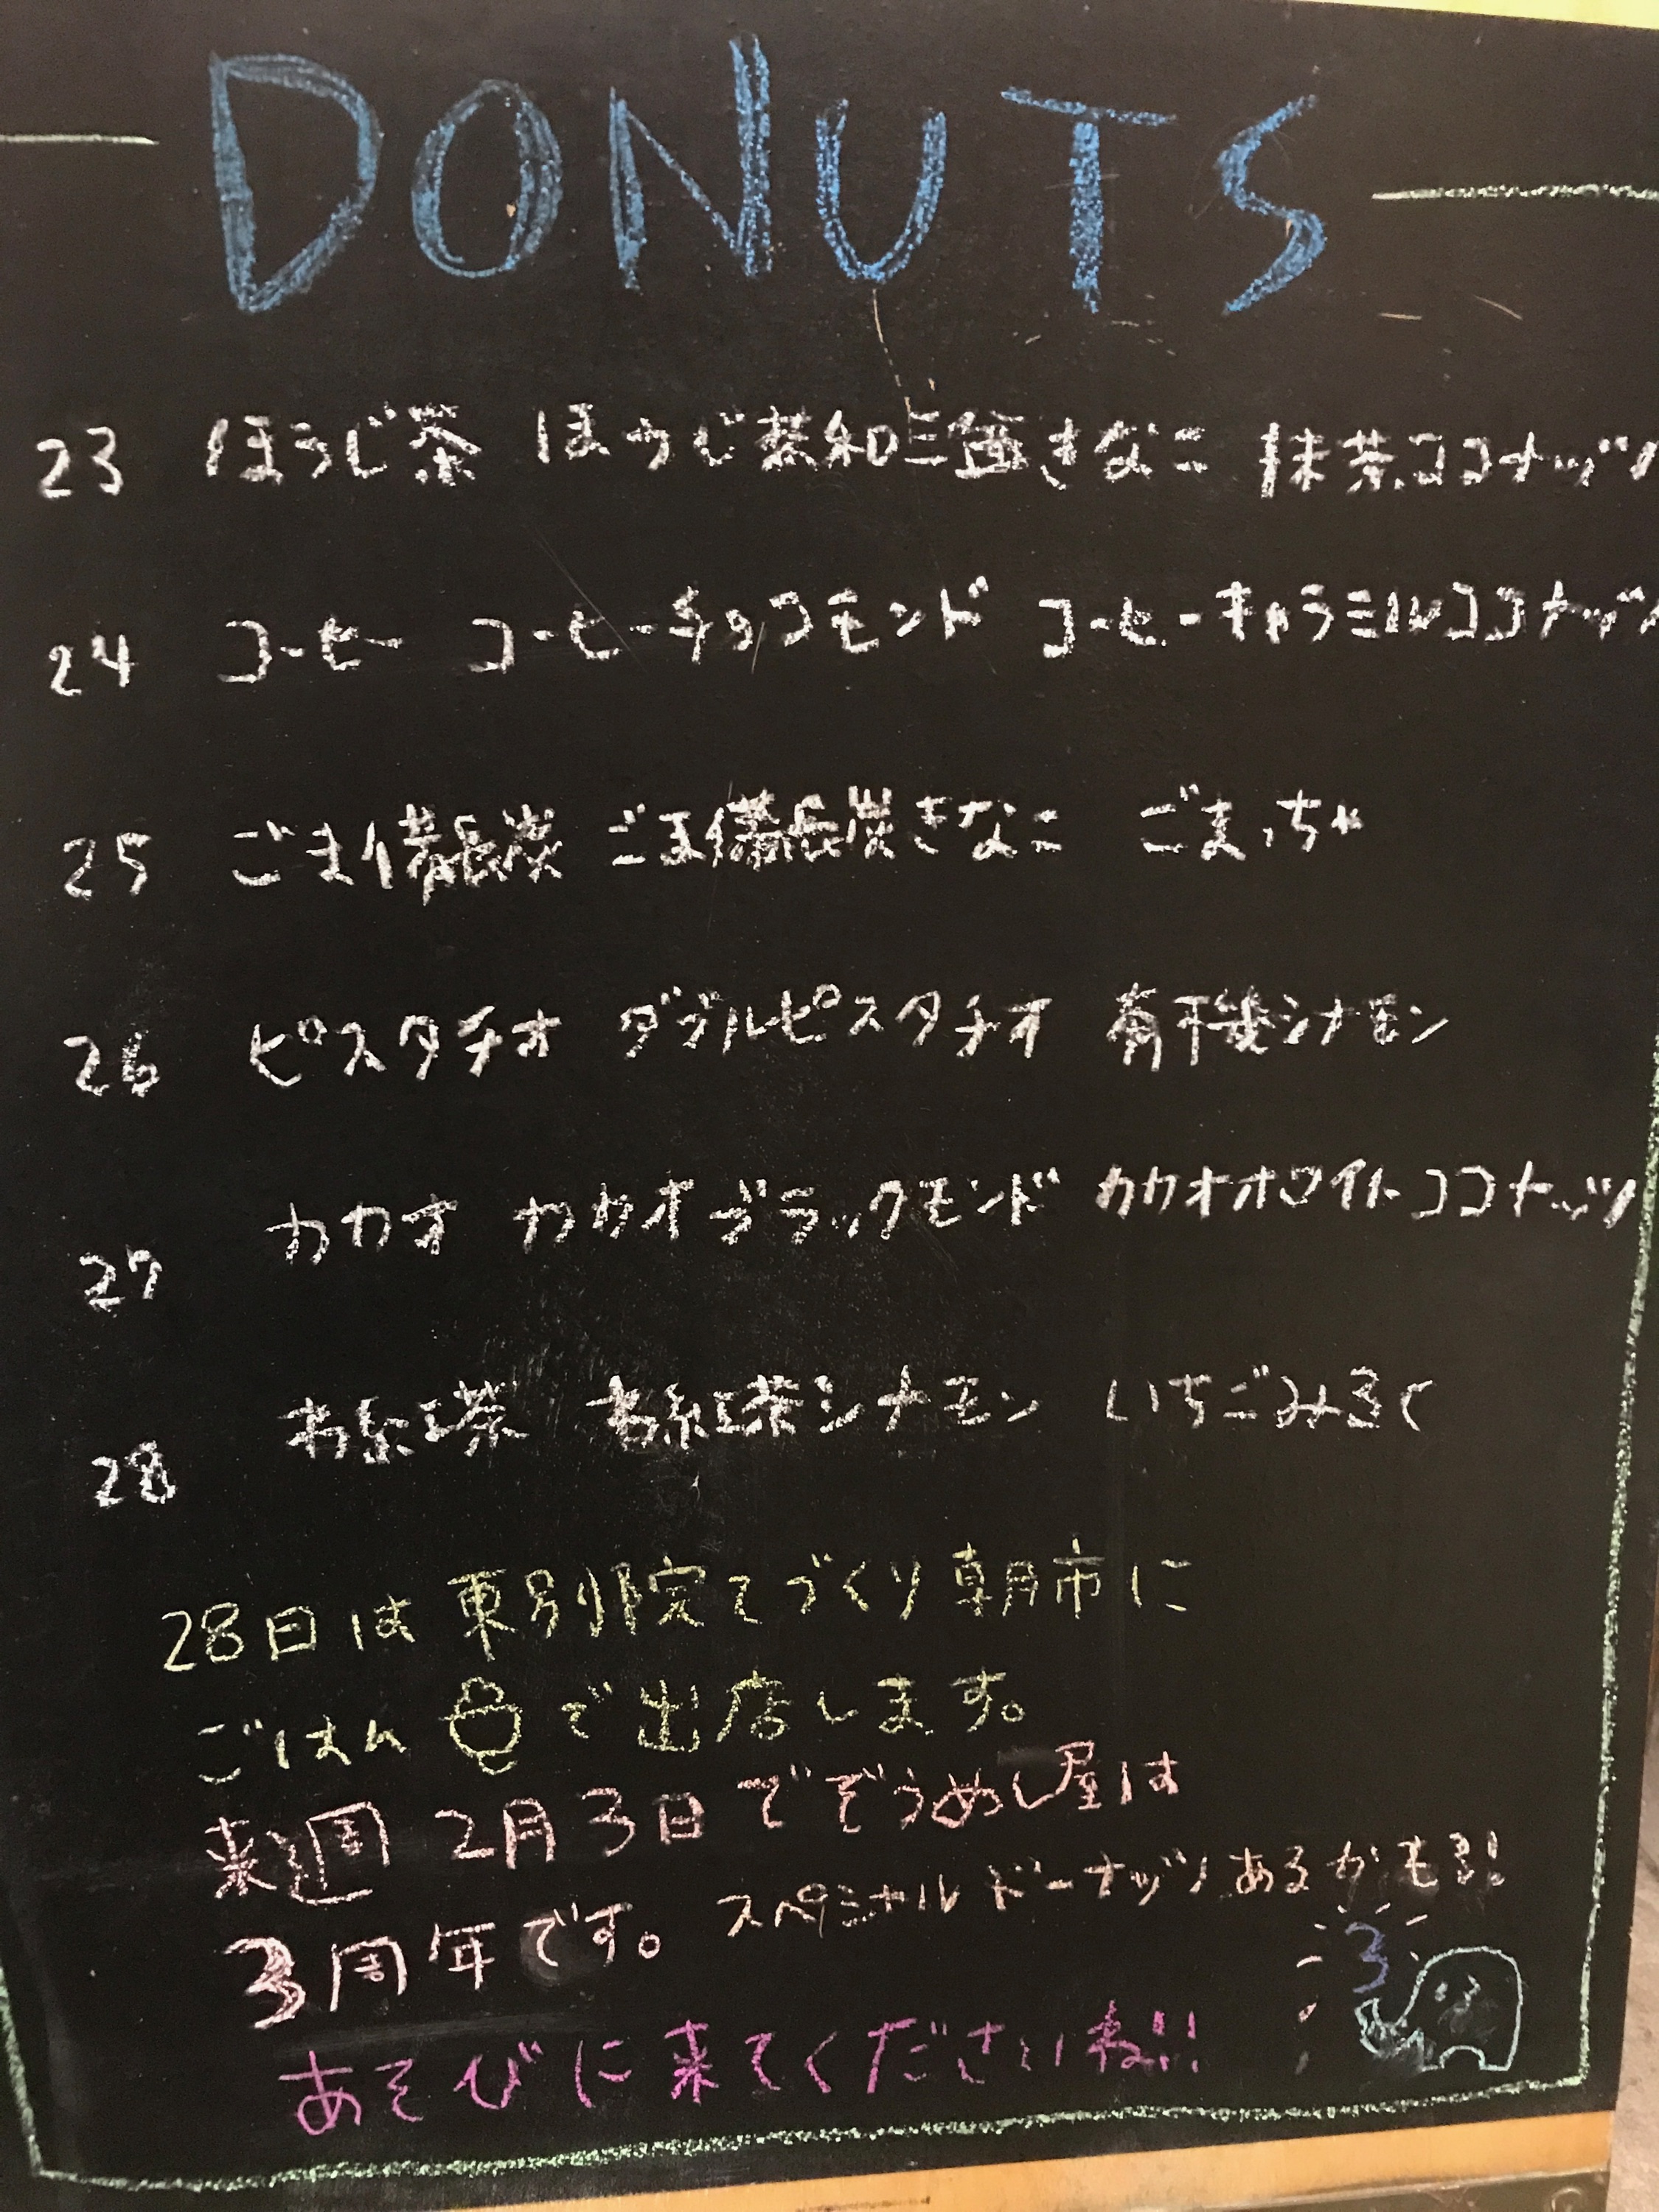 DONUTS
23 ほうじ茶 ほうじ茶和三盆きなこ 抹茶ココナッツ
24 コーヒー コーヒーチョコモンド コーヒーキャラミルココナッツ
25 ごま備長炭 ごま備長炭きなこ ごまっちゃ
26 ピスタチオ ダブルピスタチオ 有機シナモン
27 カカオ カカオブラックモンド カカオホワイトココナッツ
28 和紅茶 和紅茶シナモン いちごみるく
28日は東別院てづくり朝市に
ごはんで出店します。
来週2月3日でぞうめし屋は
3周年です。スペシャルドーナッツあるかも!!
3
あそびに来てくださいね!!